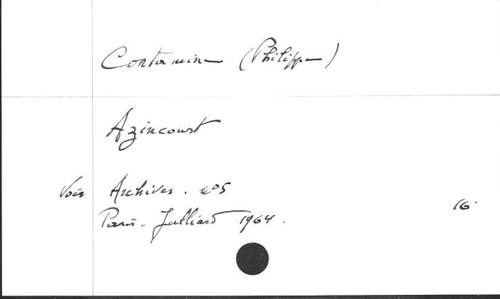 Contamine (Philippe)
Azincourt
Voir Archives. n°5
Paris. Julliard 1964.
16°